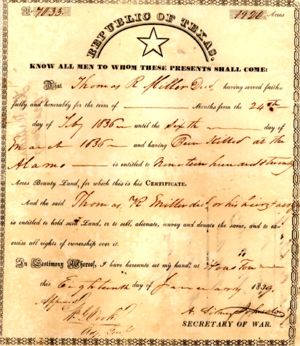 No. 7035. 1920 Acres
REPUBLIC OF TEXAS.
KNOW ALL MEN TO WHOM THESE PRESENTS SHALL COME:
That Thomas R Miller Decd having served faith-
fully and honorably for the term of Months from the 24th
day of Feby 1836 until the Sixth
day of March 1836 and having Been Killed at the
Alamo is entitled to Nineteen hundred & twenty
Acres Bounty Land, for which this is his CERTIFICATE.
And the said Thomas R Miller decd or his heirs
is entitled to hold said Land, or to sell, alienate, convey and donate the same, and to ex-
ercise all rights of ownership over it.
In Testimony Whereof, I have hereunto set my hand, at Houston
this Eighteenth day of January 1839.
Approved
A. Sidney Johnston
SECRETARY OF WAR.